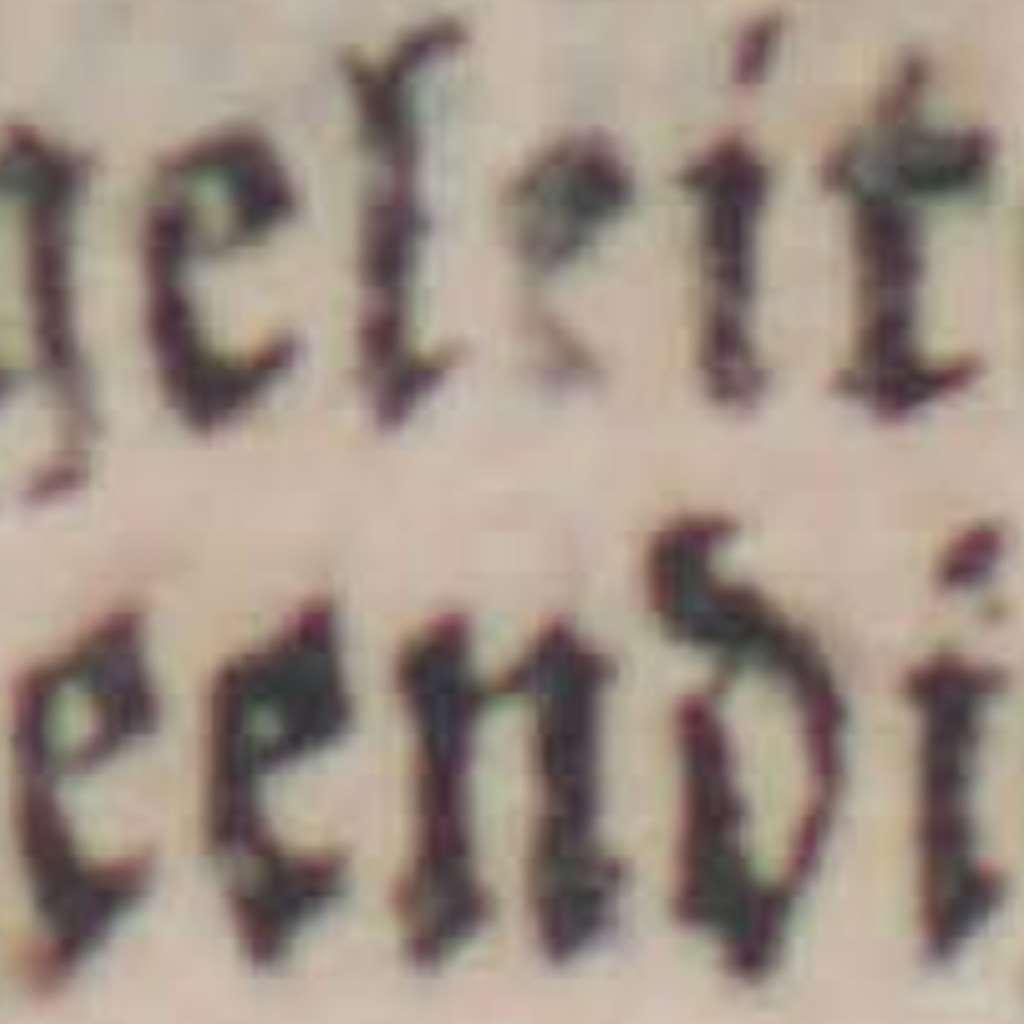 geleit
eendi